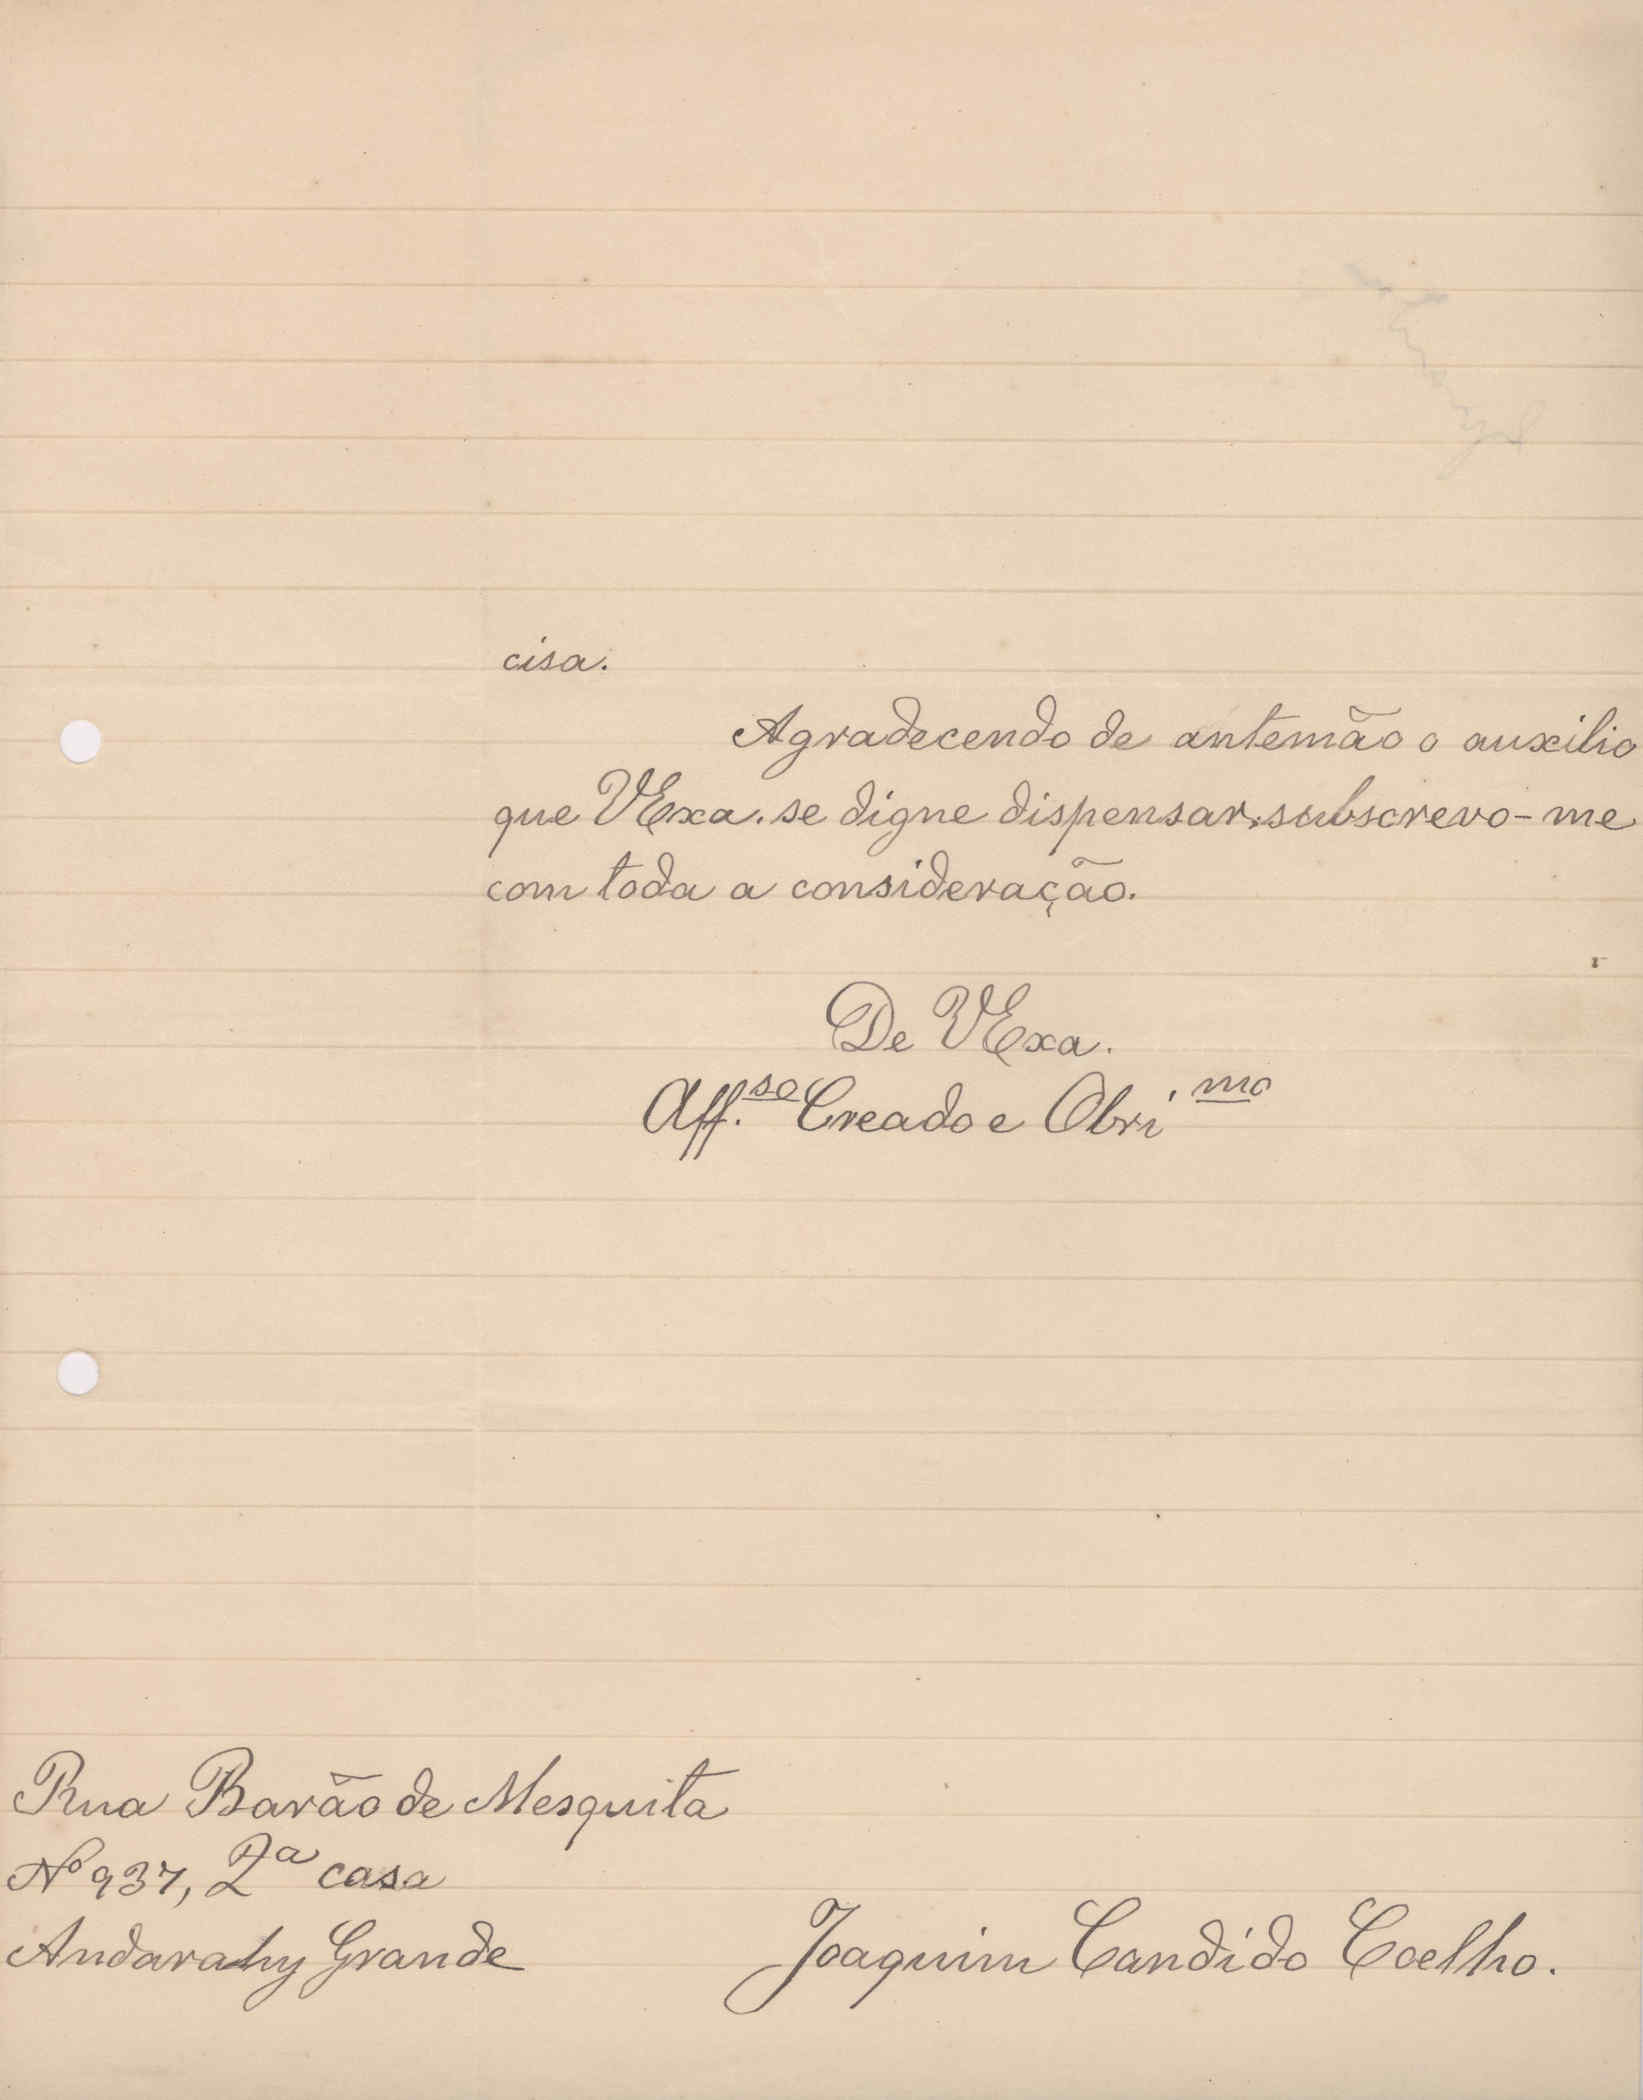 cisa.
Agradecendo de antemão o auxilio
que VExa. se digne dispensar, subscrevo-me
com toda a consideração.
De VExa.
Aff.so Creado e Obrimo
Rua Barão de Mesquita
No 937, 2a casa
Andarahy Grande
Joaquim Candido Coelho.